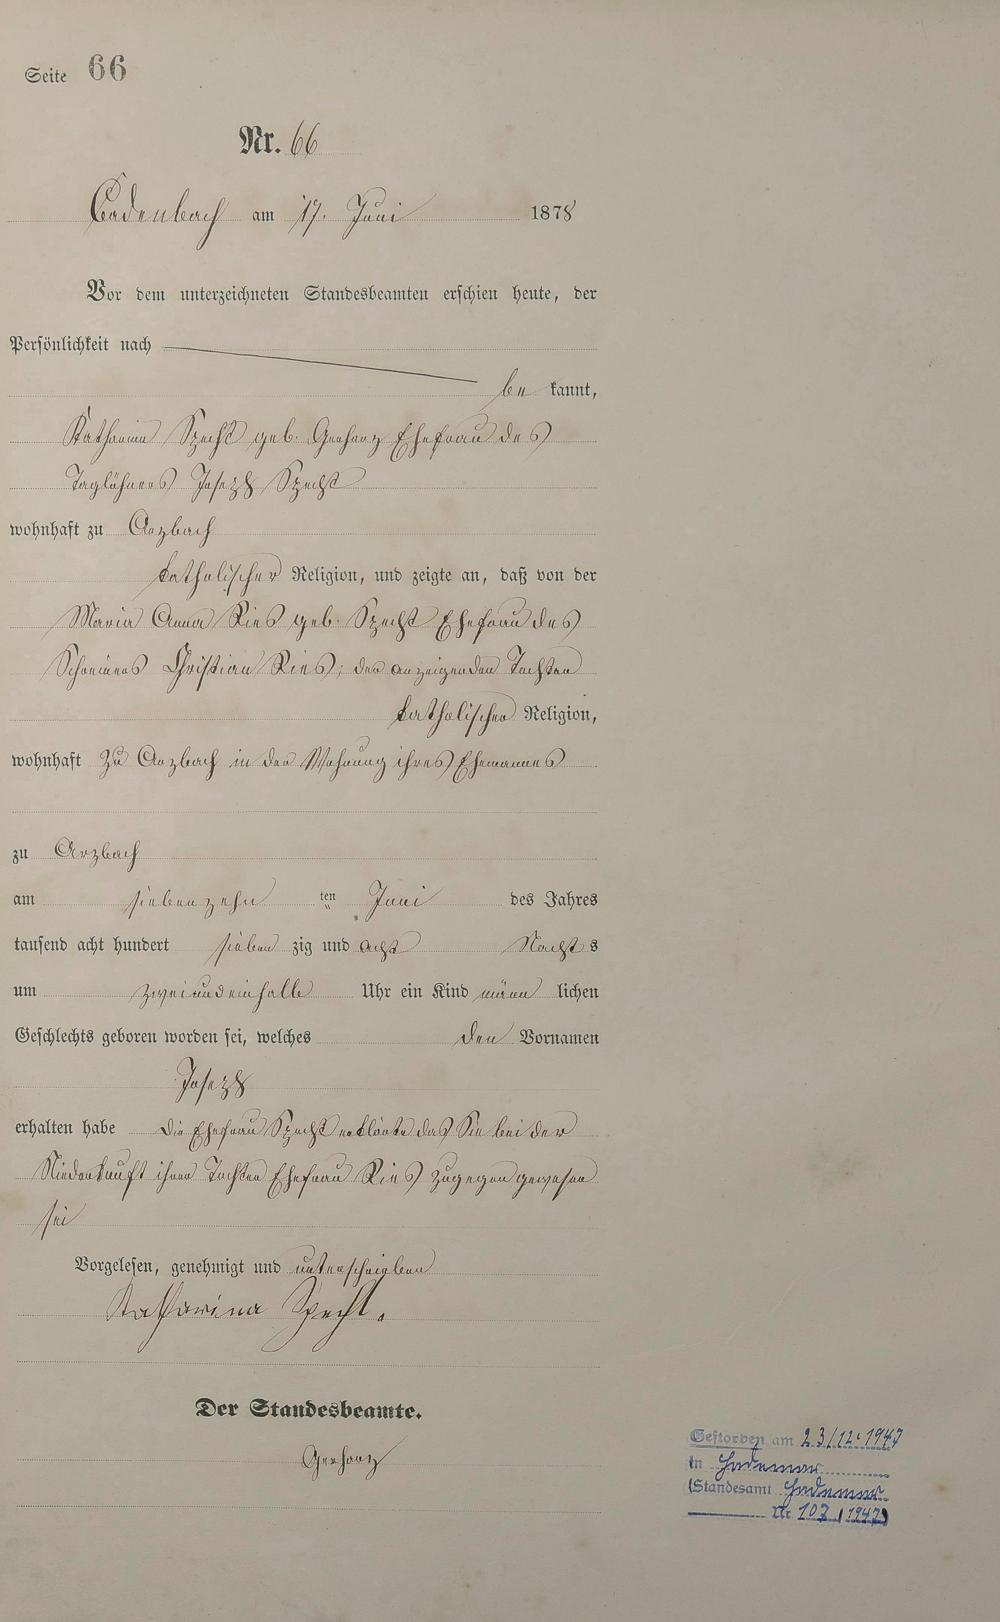 Seite 66
Nr. 66
Cadenbach am 17. Juni 1878
Vor dem unterzeichneten Standesbeamten erschien heute, der
Persönlichkeit nach
be kannt,
Katharina Specht geb. Gerharz Ehefrau des
Taglöhners Joseph Specht
wohnhaft zu Arzbach
katholischer Religion, und zeigte an, daß von der
Maria Anna Ries geb. Specht Ehefrau des
Schreiners Christian Ries, der anzeigenden Tochter
katholischer Religion,
wohnhaft zu Arzbach in der Wohnung ihres Ehemannes
zu Arzbach
am siebenzehn ten Juni des Jahres
tausend acht hundert sieben zig und acht Nacht s
um zweiundeinhalb Uhr ein Kind männ lichen
Geschlechts geboren worden sei, welches den Vornamen
Joseph
erhalten habe die Ehefrau Specht erklärte das Sie bei der
Niederkunft ihrer Tochter Ehefrau Ries zugegen gewesen
sei
Vorgelesen, genehmigt und unterschrieben
Katharina Specht.
Der Standesbeamte.
Gerharz
Gestorben am 23/12.1947
in Hadamar
(Standesamt Hadamar
Nr 107/1947)